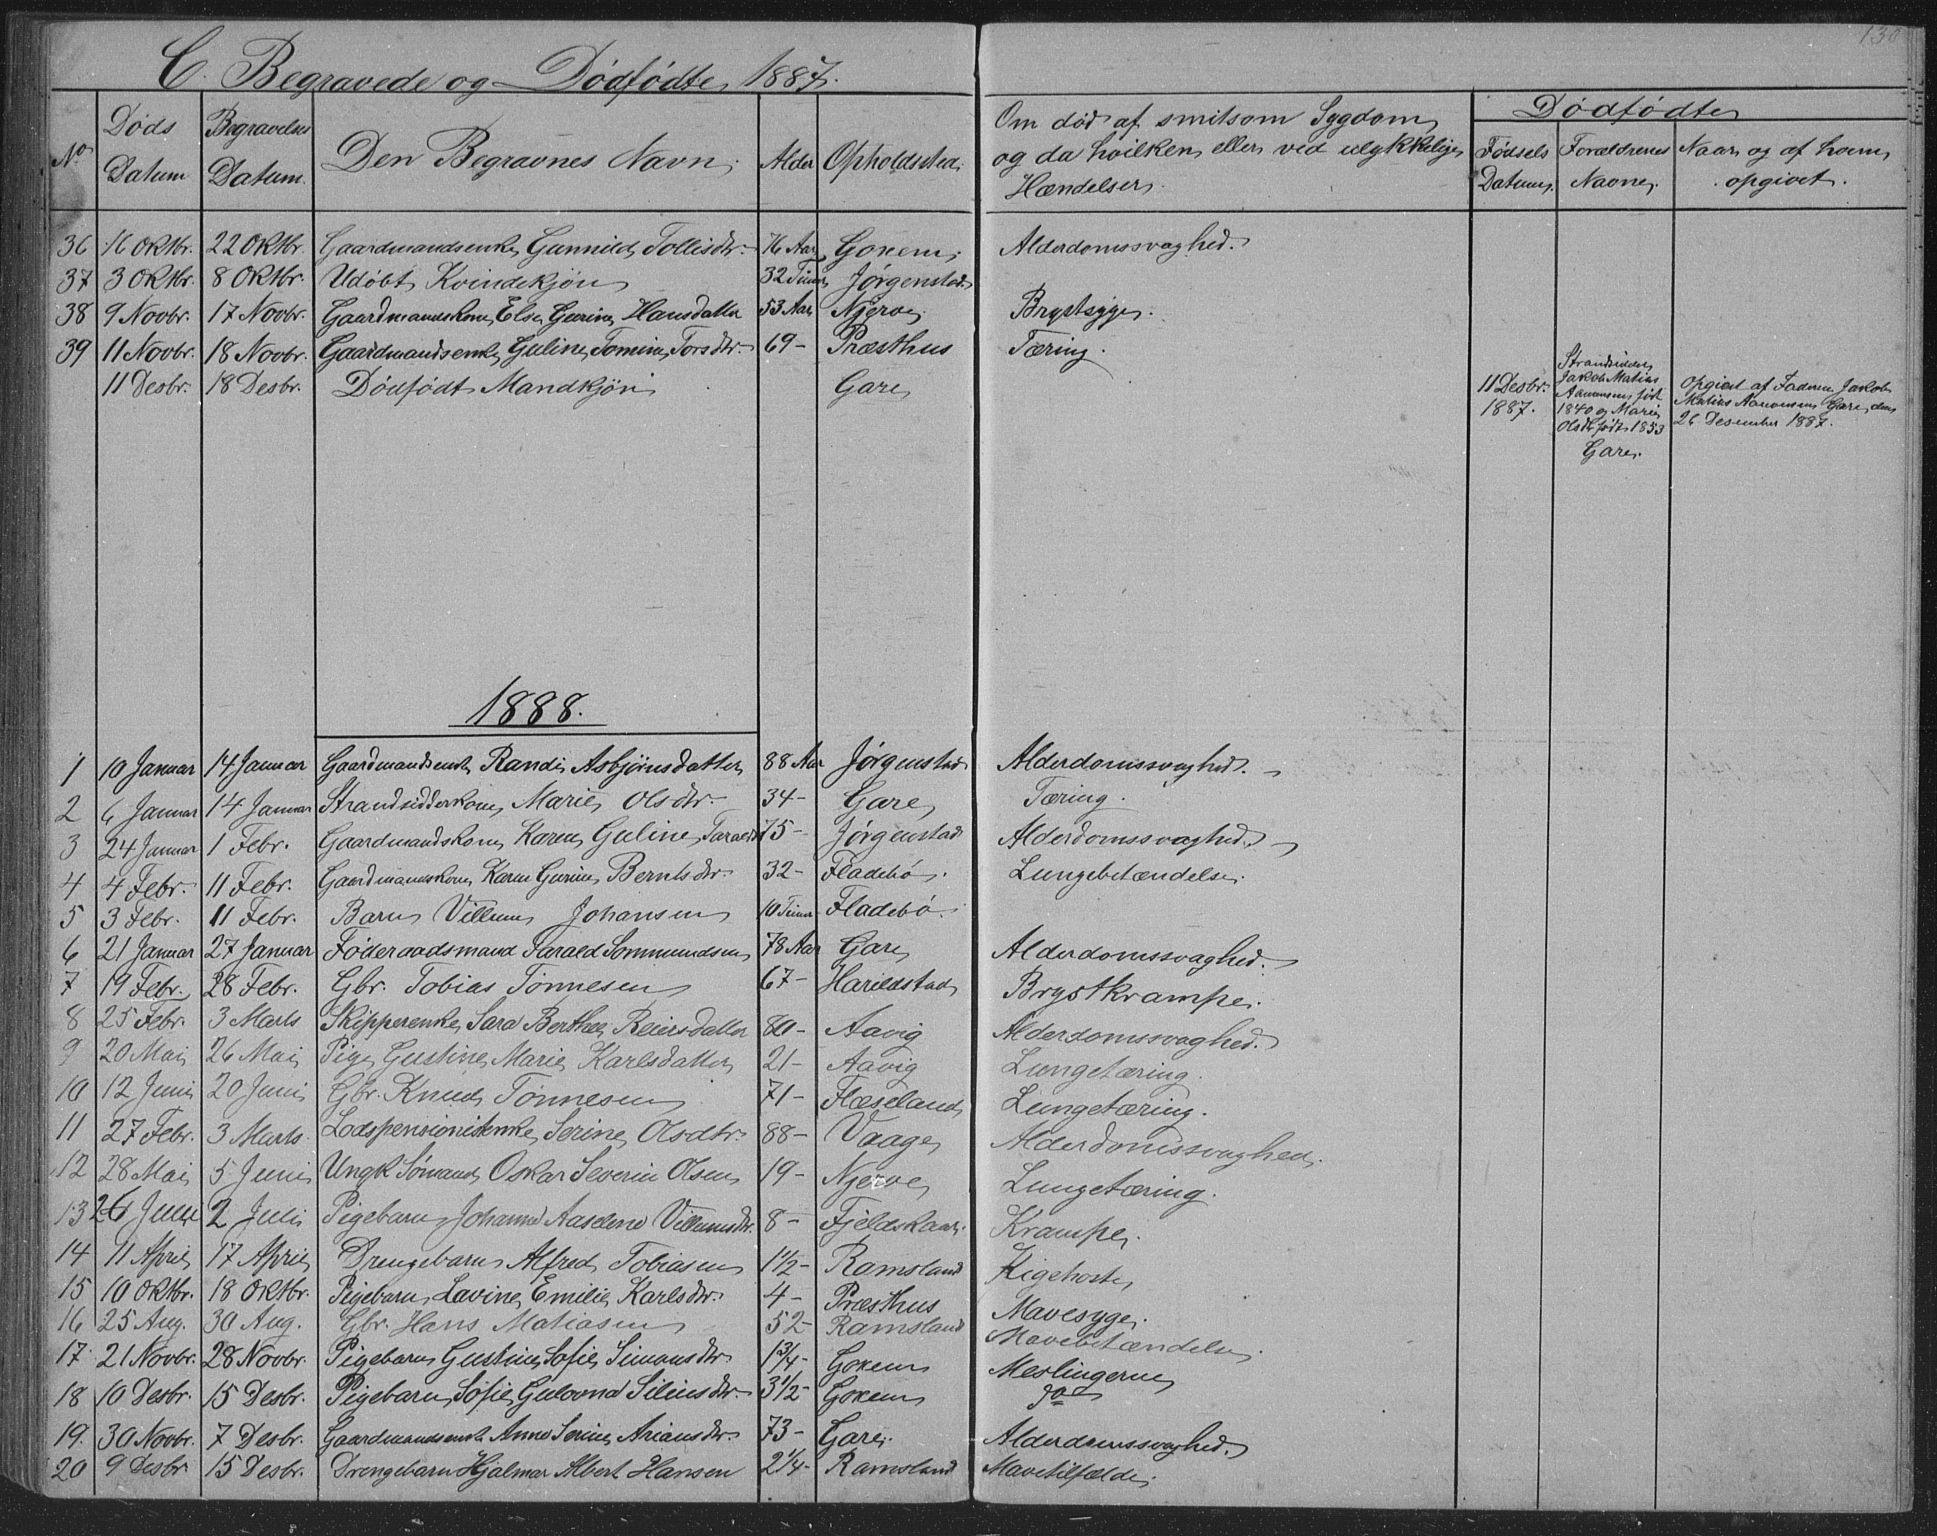 130
C. Begravede og Dødfødte 1887.
No
Døds Datum
Begravelses Datum.
Den Begravnes Navn.
Alder
Opholdssted.
Om død af smitsom Sygdom
og da hvilken, eller ved ulykkelige
Hændelser.
Dødfødte
Fødsels Datum.
Forældrenes Navne.
Naar og af hvem opgivet.
36 16 Oktbr. 22 Oktbr. Gaardmandsenke Gunnild Tollisdtr. 76 Aar Goxem. Alderdomssvaghed.
37 3 Oktbr. 8 Oktbr. Udøbt Kvindekjøn 32 Timer Jørgenstad
38 9 Novbr. 17 Novbr. Gaardmandskone Else Gurine Hansdatter 53 Aar Njerve. Brystsyge.
39 11 Novbr. 18 Novbr. Gaardmandsenke Guline Tomine Torsdtr. 69 - Præsthus Tæring.
11 Desbr. 18 Desbr. Dødfødt Mandkjøn Gare
11 Desbr. 1887.
Strandsidder
Jakob Matias
Aanensen født
1840 og Marie
Olsdtr født 1853
Gare.
Opgivet af Faderen Jakob
Matias Aanensen Gare, den
26 Desember 1887.
1888.
1 10 Januar 14 Januar Gaardmandsenke Randi Asbjørnsdatter 88 Aar Jørgenstad Alderdomssvaghed.
2 6 Januar 14 Januar Strandsidderkone Marie Olsdtr. 34 - Gare Tæring.
3 24 Januar 1 Febr. Gaardmandskone Karen Guline Taraldsd 75 - Jørgenstad Alderdomssvaghed.
4 4 Febr. 11 Febr. Gaardmandskone Karen Gurine Berntsdtr. 32 - Fladebø. Lungebetændelse.
5 3 Febr. 11 Febr. Barn Villum Johansen 10 Timer Fladebø.
6 21 Januar 27 Januar Føderaadsmand Tarald Sommundsen 78 Aar Gare Alderdomssvaghed.
7 19 Febr. 28 Febr. Gbr. Tobias Tønnesen 67 - Harildstad Brystkrampe.
8 25 Febr. 3 Marts Skipperenke Sara Berthea Reiersdatter 80 - Aavig Alderdomssvaghed.
9 20 Mai 26 Mai Pige Gustine Marie Karlsdatter 21 - Aavig Lungetæring.
10 12 Juni 20 Juni Gbr. Knud Tønnesen 71 - Flæseland Lungetæring.
11 27 Febr. 3 Marts. Lodspensionistenke Serine Olsdtr. 88 - Vaage Alderdomssvaghed.
12 28 Mai 5 Juni Ungk Sømand Oskar Severin Olsen 19 - Njerve Lungetæring.
13 26 Juni 2 Juli Pigebarn Johanne Aaselene Villumsdtr. 8 - Fjeldskaar. Krampe.
14 11 April 17 April Drengebarn Alfred Tobiasen 1 1/2 - Ramsland Kighoste
15 10 Oktbr. 18 Oktbr. Pigebarn Lavine Emilie Karlsdtr. 4 - Præsthus Mavesyge.
16 25 Aug. 30 Aug. Gbr. Hans Matiasen 52 - Ramsland Mavebetændelse.
17 21 Novbr. 28 Novbr. Pigebarn Gustine Sofie Simonsdtr 1 3/4 - Goxem Meslingerne
18 10 Desbr. 15 Desbr. Pigebarn Sofie Gulovna Siliusdtr. 3 1/2 - Goxem do
19. 30 Novbr. 7 Desbr. Gaardmandsenke Anne Serine Ariansdtr. 73 - Gare. Alderdomssvaghed.
20 9 Desbr 15 Desbr. Drengebarn Hjalmar Albert Hansen 2 1/4 - Ramsland Mavetilfælde.